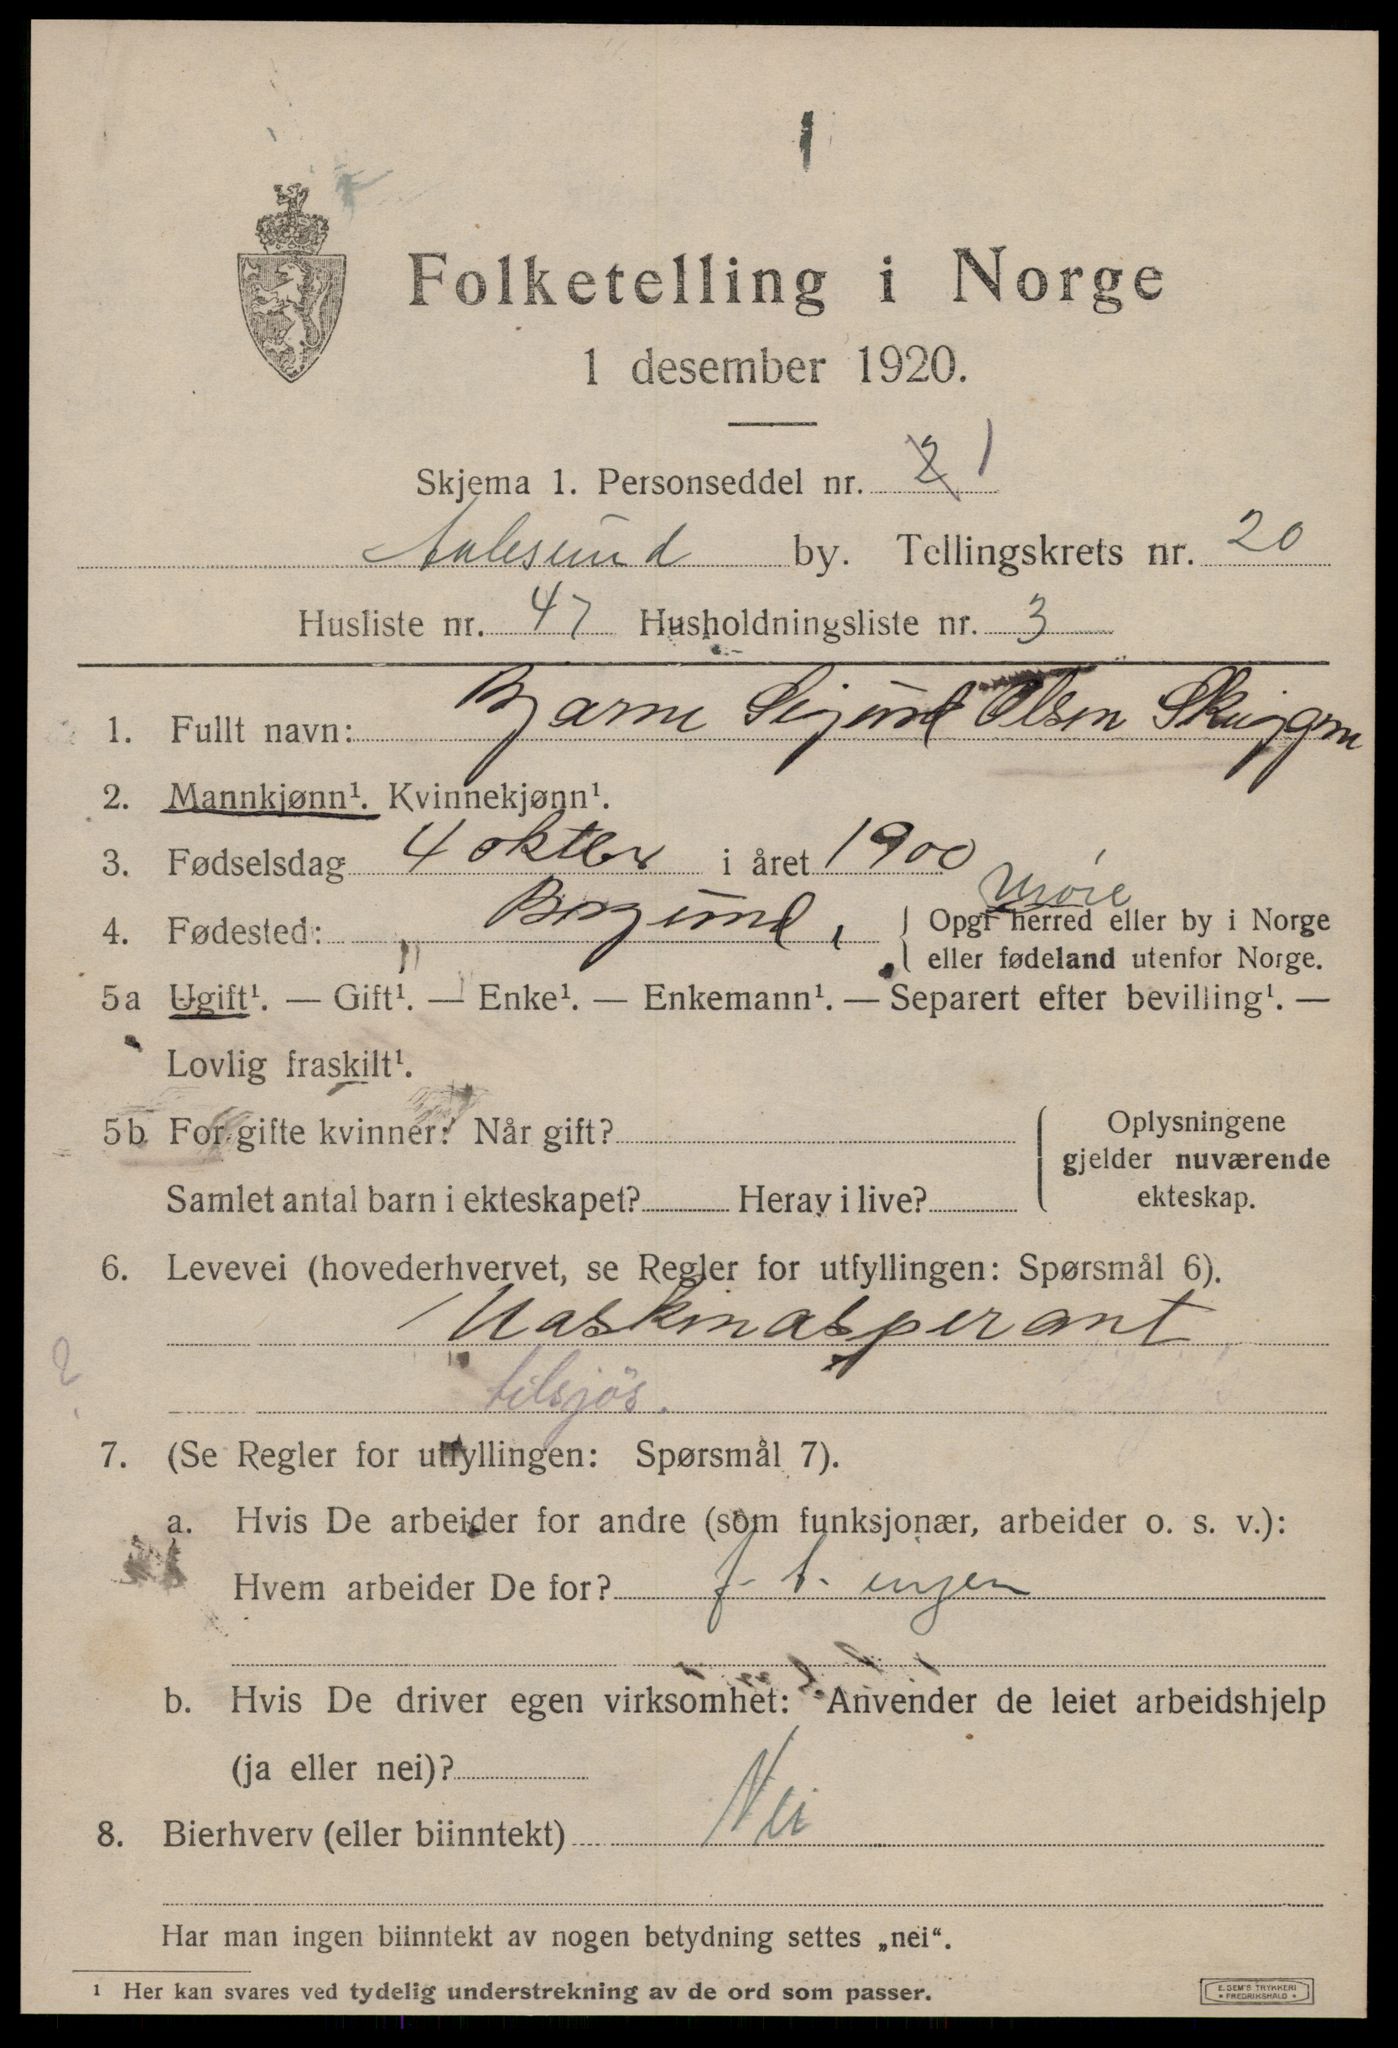 Folketelling i Norge
1 desember 1920.
Skjema 1. Personseddel nr. 2 1
Aalesund by. Tellingskrets nr. 20
Husliste nr. 47 Husholdningsliste nr. 3
1. Fullt navn: Bjarne Sigurd Olsen Skuggen
2. Mannkjønn¹. Kvinnekjønn¹.
3. Fødselsdag 4 oktbr i året 1900
Møre
4. Fødested: Borgund, Opgi herred eller by i Norge
eller fødeland utenfor Norge.
5a Ugift¹. — Gift¹. — Enke¹. — Enkemann¹. — Separert efter bevilling¹. —
Lovlig fraskilt¹.
5b For gifte kvinner: Når gift?
Oplysningene
gjelder nuværende
ekteskap.
Samlet antal barn i ekteskapet? Herav i live?
6. Levevei (hovederhvervet, se Regler for utfyllingen: Spørsmål 6).
Maskinasperant
tilsjøs.
7. (Se Regler for utfyllingen: Spørsmål 7).
a. Hvis De arbeider for andre (som funksjonær, arbeider o. s. v.):
Hvem arbeider De for? f. t. ingen
b. Hvis De driver egen virksomhet: Anvender de leiet arbeidshjelp
(ja eller nei)?
8. Bierhverv (eller biinntekt) Nei
Har man ingen biinntekt av nogen betydning settes „nei“.
¹ Her kan svares ved tydelig understrekning av de ord som passer.
E. SEM'S TRYKKERI
FREDRIKSHALD